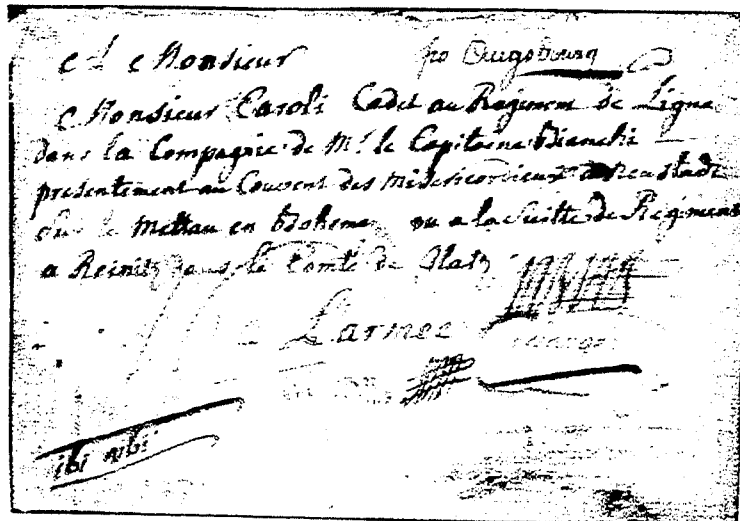 A Monsieur po Augsbourg
Monsieur Caroli Cadet au Regiment de Ligne
dans la Compagnie de Mr. le Capitaine Bianchi
presentement au Couvent des Misericordieux a Neustadt
sur le Mettau en Boheme ou a la Suitte de Regiment
a Reinitz dans le Comté de Glatz
a L'armee
ibi ubi